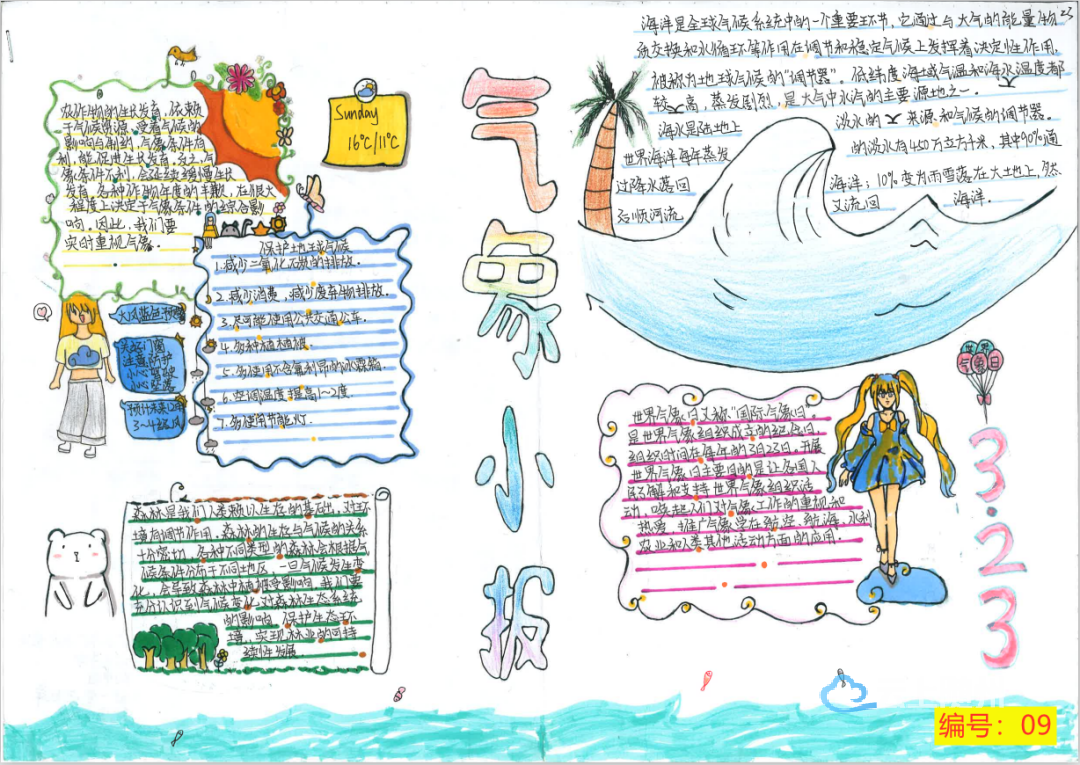 农作物的生长发育，依赖
于气候资源，受着气候的
影响与制约，气象条件有
利，能促进生长发育，反之，气
象条件不利，会延续缓慢生长
发育，各种作物的年度的丰歉，在很大
程度上决定于气象条件的综合影
响。因此，我们要
实时重视气象。
Sunday
16℃/11℃
大风蓝色预警
关好门窗
注意防护
小心驾驶
小心坠落
预计未来12时
3～4级风
保护地球气候
1.减少二氧化石炭的排放.
2.减少消费，减少废弃物排放.
3.尽可能使用公共交通公车.
4.多种植植被.
5.多使用不含氟利昂的冰霖箱.
6.空调温度提高1～2度.
7.多使用节能灯.
森林是我们人类赖以生存的基础，对环
境有调节作用，森林的生存与气候的关系
十分密切，各种不同类型的森林会根据气
候条件分布于不同土地区，一旦气候发生变
化，会导致森林中植被受影响，我们要
充分认识到气候变化，对森林生态系统
的影响，保护生态环
境，实现林业的可持
续性发展.
气象小报
海洋是全球气候系统中的一个重要环节，它通过与大气的能量物
质交换和水循环等作用在调节和稳定气候上发挥着决定性作用，
被称为地球气候的“调节器”。低纬度海域气温和海水温度都
较高，蒸发剧烈，是大气中水汽的主要源地之一。
海水是陆地上
淡水的来源和气候的调节器。
世界海洋每年蒸发
的淡水有450万立方千米，其中90%通
过降水落回
海洋；10%变为雨雪落在大土地上，然
后顺河流
又流回
海洋.
23
世界
气象日
3.23
世界气象日又称“国际气象日”
是世界气象组织成立的纪念日.
组织时间在每年的3月23日。开展
世界气象日主要目的是让各国人
民了解和支持世界气象组织活
动，唤起人们对气象工作的重视和
热爱，推广气象学在航空、航海、水利
农业和人类其他活动方面的应用.
编号：09